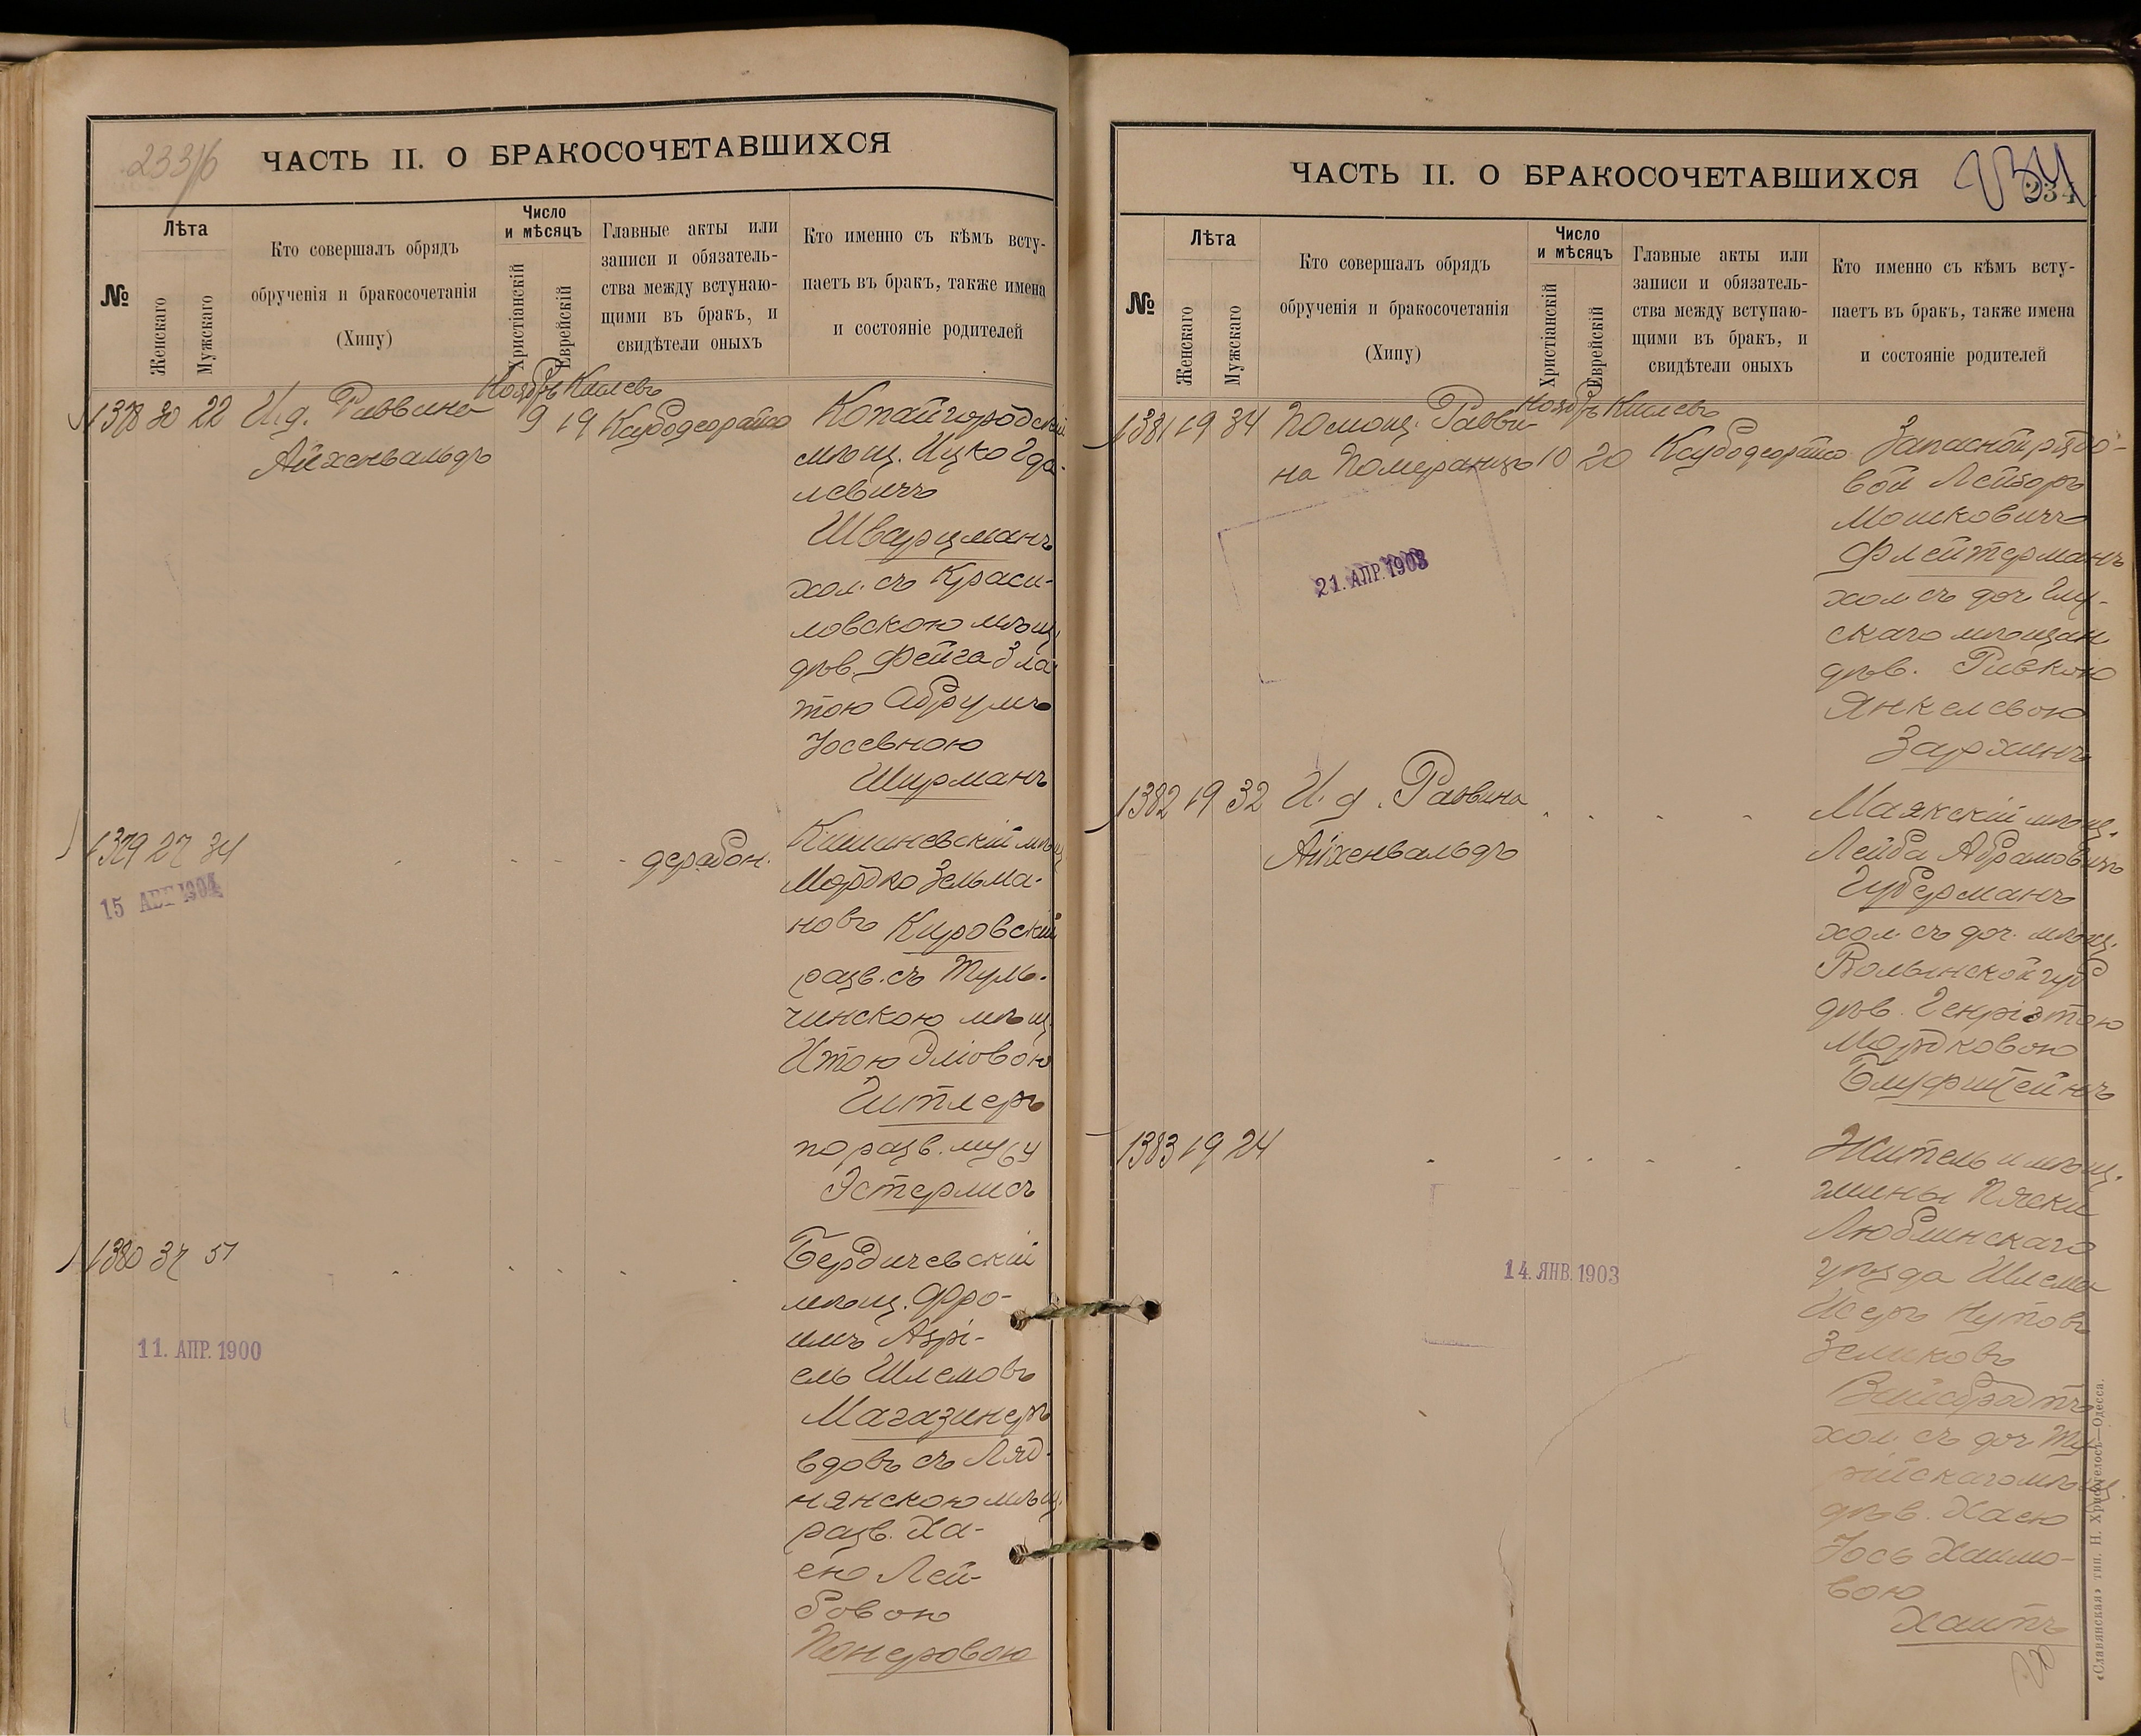 233/6
ЧАСТЬ II. О БРАКОСОЧЕТАВШИХСЯ
№
Лѣта
Женскаго
Мужскаго
Кто совершалъ обрядъ
обрученія и бракосочетанія
(Хипу)
Число
и мѣсяцъ
Христіанскій
Еврейскій
Главные акты или
записи и обязатель-
ства между вступаю-
щими въ бракъ, и
свидѣтели оныхъ
Кто именно съ кѣмъ всту-
паетъ въ бракъ, также имена
и состояніе родителей
Ноябрь Кислевъ
1378 20 22 И.д. Раввина 9 19
Айхенвальдъ
Копайгородскій
мѣщ. Ицко Гда-
левичъ
Шварцманъ
хол. съ Краси-
ловскою мѣщ.
дѣв. Фейга Зла-
тою Абрумъ
Іосевною
Ширманъ
1379 27 34
15 АВГ 1904
Кишиневскій мѣщ
Мордко Зельма-
новъ Кировскій
разв. съ Туль-
чинскою мѣщ.
Итою Эліовою
Гитлеръ
по разв. мужу
Эстерлисъ
1380 37 51
11. АПР. 1900
Бердичевскій
мѣщ. Фро-
имъ Азрі-
ель Шлемовъ
Магазинеръ
вдовъ съ Ляд-
нянскою мѣщ.
разв. Ха-
ею Лей-
бовою
ЧАСТЬ II. О БРАКОСОЧЕТАВШИХСЯ
234
№
Лѣта
Женскаго
Мужскаго
Кто совершалъ обрядъ
обрученія и бракосочетанія
(Хипу)
Число
и мѣсяцъ
Христіанскій
Еврейскій
Главные акты или
записи и обязатель-
ства между вступаю-
щими въ бракъ, и
свидѣтели оныхъ
Кто именно съ кѣмъ всту-
паетъ въ бракъ, также имена
и состояніе родителей
Ноябрь Кислевъ
1381 19 34 Помощ. Равви-
на Померанцъ 10 20
21. АПР. 1903
Запасной рядо-
вой Лейзоръ
Мошковичъ
Флейтерманъ
хол съ доч Глу-
скаго мѣщан
дѣв. Ривкою
Янкелевою
Зархинъ
1382 19 32 И.д. Раввина
Айхенвальдъ
Маякскій мѣщ.
Лейба Абрамовичъ
Губерманъ
хол. съ доч. мѣщ.
Волынской губ
дѣв. Генріэтою
Мордковою
Блуфштейнъ
1383 19 24
14. ЯНВ. 1903
Житель и мѣщ.
гмины Пяски
Люблинскаго
уѣзда Шлема
Исеръ Нутовъ
Зеликовъ
Вайсбродтъ
хол. съ доч Ту-
рійскаго мѣщ.
дѣв. Хаею
Іось Хаимо-
вою
Хаитъ
«Славянская» тип. Н. Хрисогелосъ—Одесса.